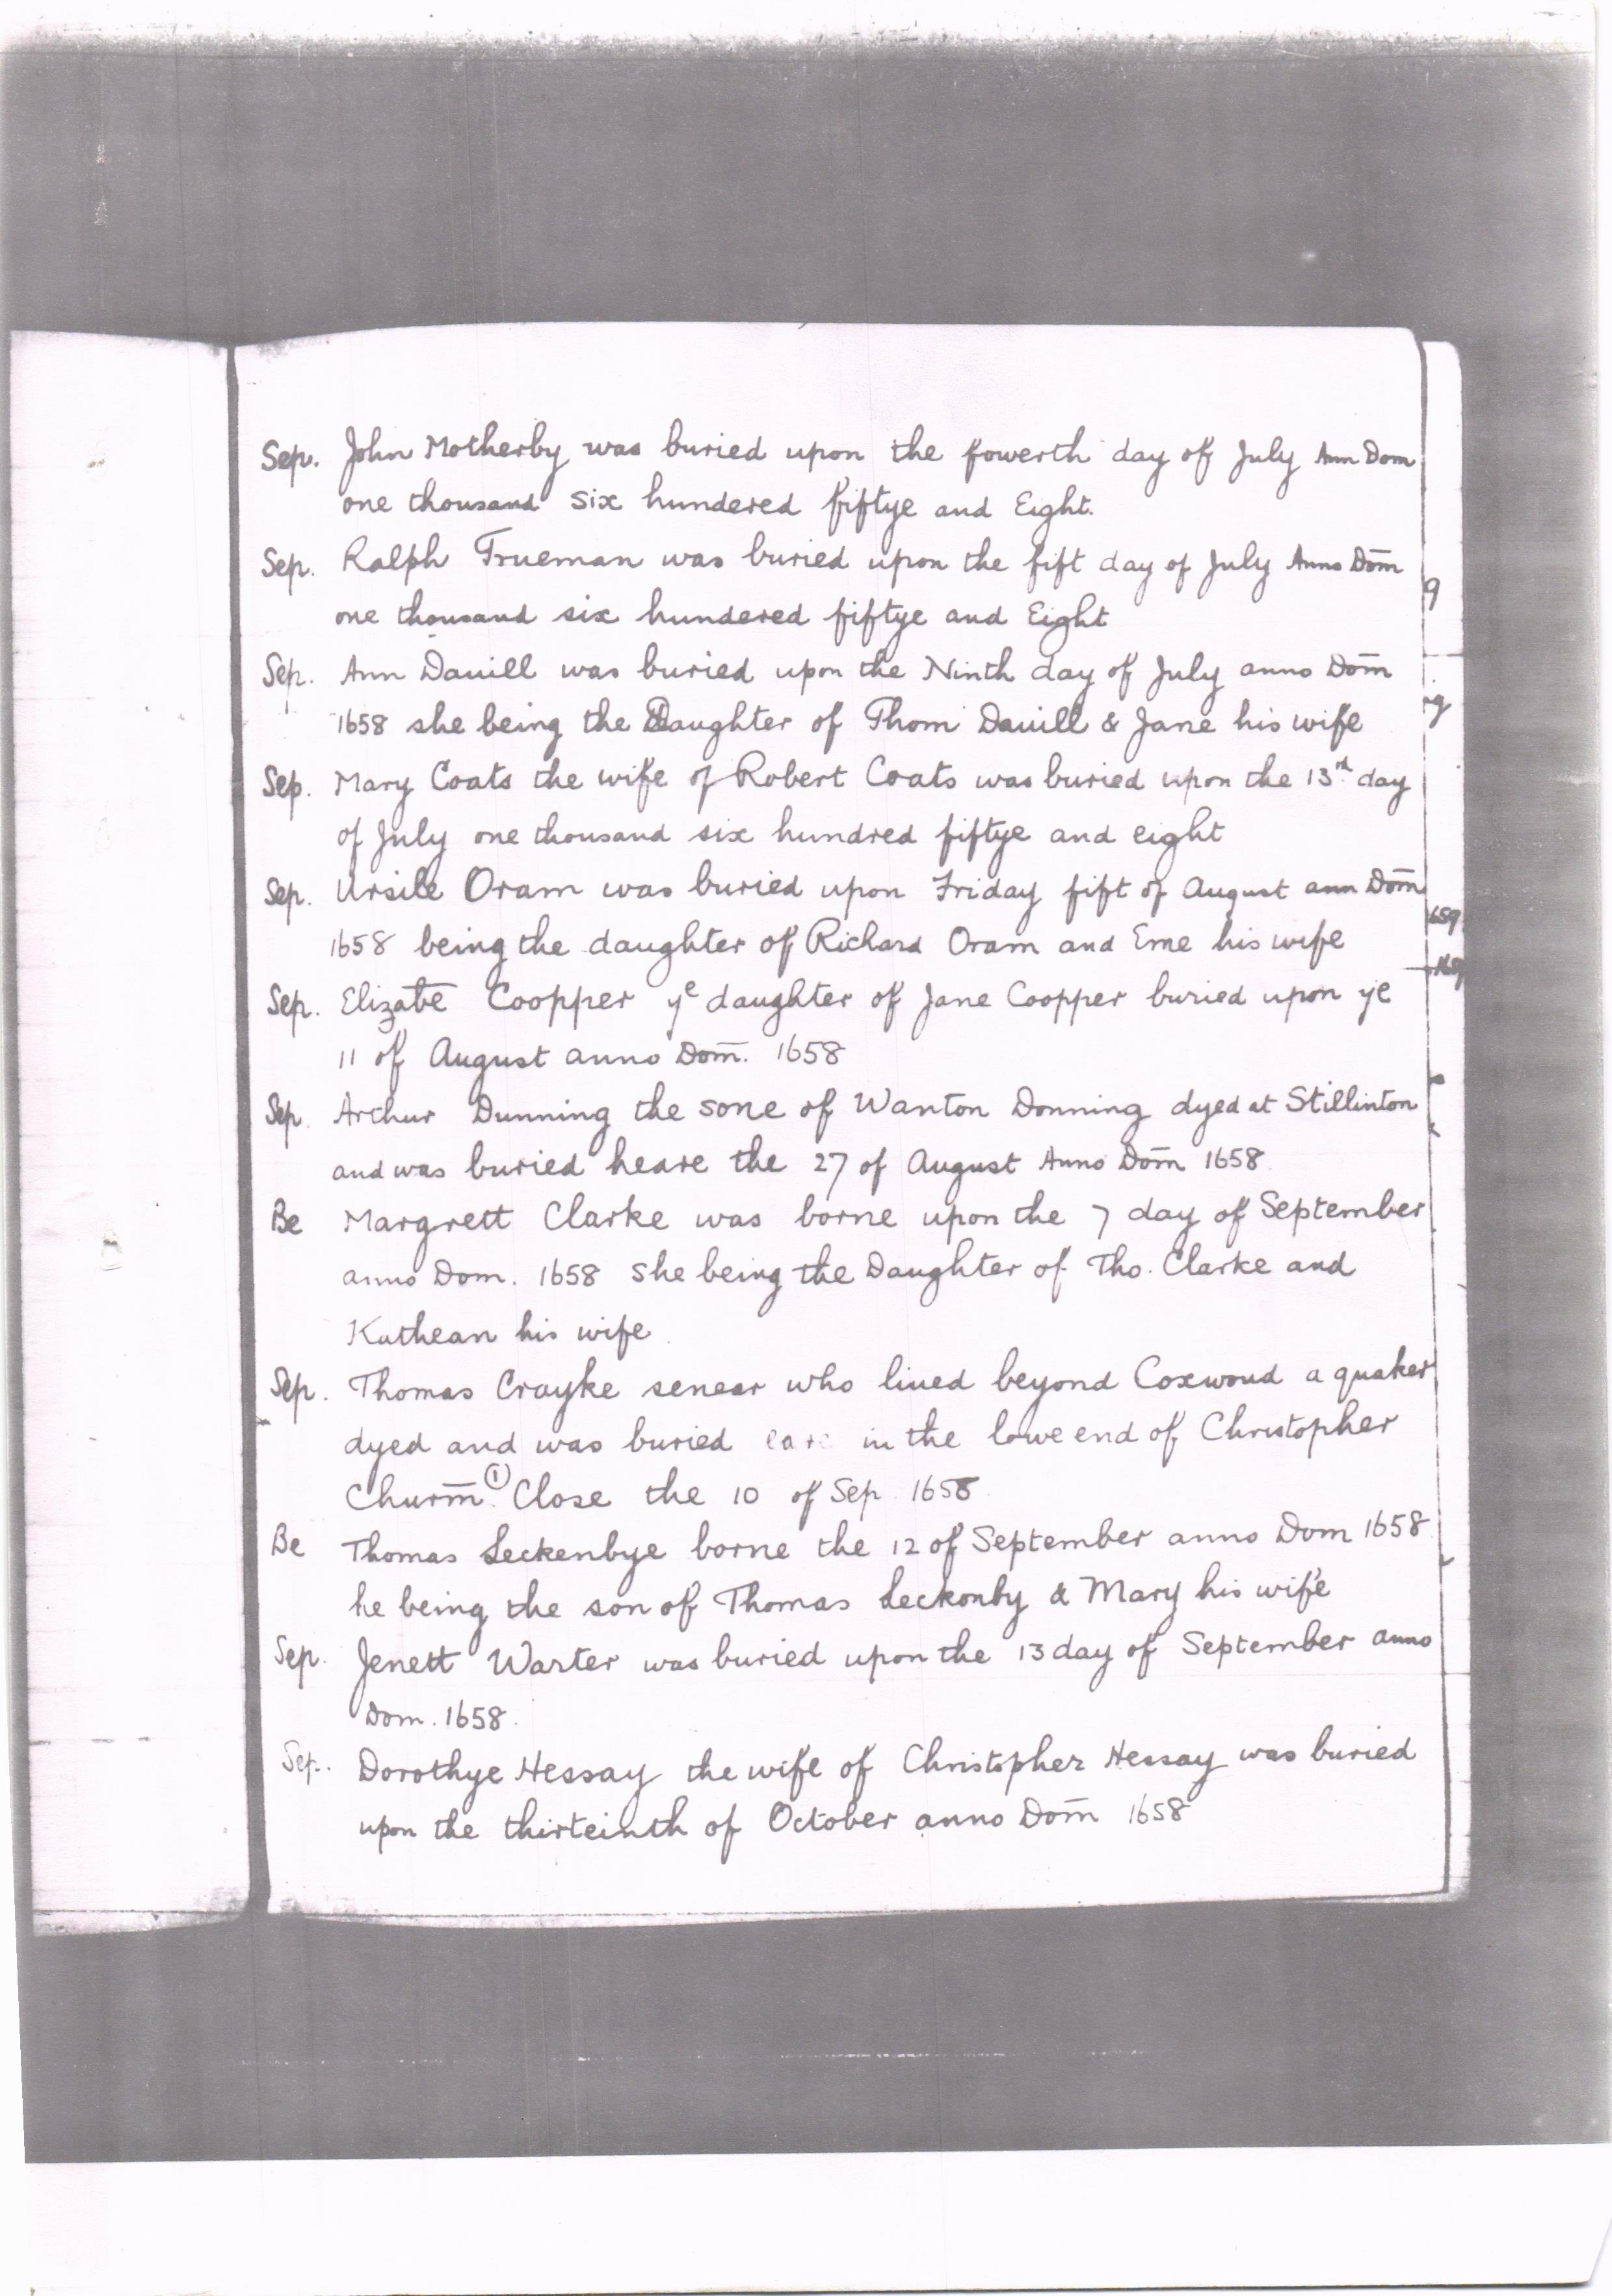 Sep. John Motherby was buried upon the fowerth day of July Ann Dom
one thousand six hundered fiftye and Eight.
Sep. Ralph Trueman was buried upon the fift day of July Anno Dom̄
one thousand six hundered fiftye and Eight
Sep. Ann Dauill was buried upon the Ninth day of July anno Dom̄
1658 she being the Daughter of Thom Dauill & Jane his wife
Sep. Mary Coats the wife of Robert Coats was buried upon the 13rd day
of July one thousand six hundred fiftye and eight
Sep. Ursile Oram was buried upon Friday fift of August ann Dom̄
1658 being the daughter of Richard Oram and Eme his wife
Sep. Elizabe Coopper ye daughter of Jane Coopper buried upon ye
11 of August anno Dom̄. 1658
Sep. Arthur Dunning the sone of Wanton Donning dyed at Stillinton
and was buried heare the 27 of August Anno Dom̄ 1658
Be Margrett Clarke was borne upon the 7 day of September
anno Dom. 1658 she being the Daughter of Tho. Clarke and
Kathean his wife
Sep. Thomas Crayke senear who liued beyond Coxwoud a quaker
dyed and was buried in the lowe end of Christopher
Churm̄ ① Close the 10 of Sep. 1658
Be Thomas Leckenbye borne the 12 of September anno Dom 1658
he being the son of Thomas Leckonby & Mary his wife
Sep. Jenett Warter was buried upon the 13 day of September anno
Dom. 1658.
Sep. Dorothye Hessay the wife of Christopher Hessay was buried
upon the thirteinth of October anno Dom̄ 1658